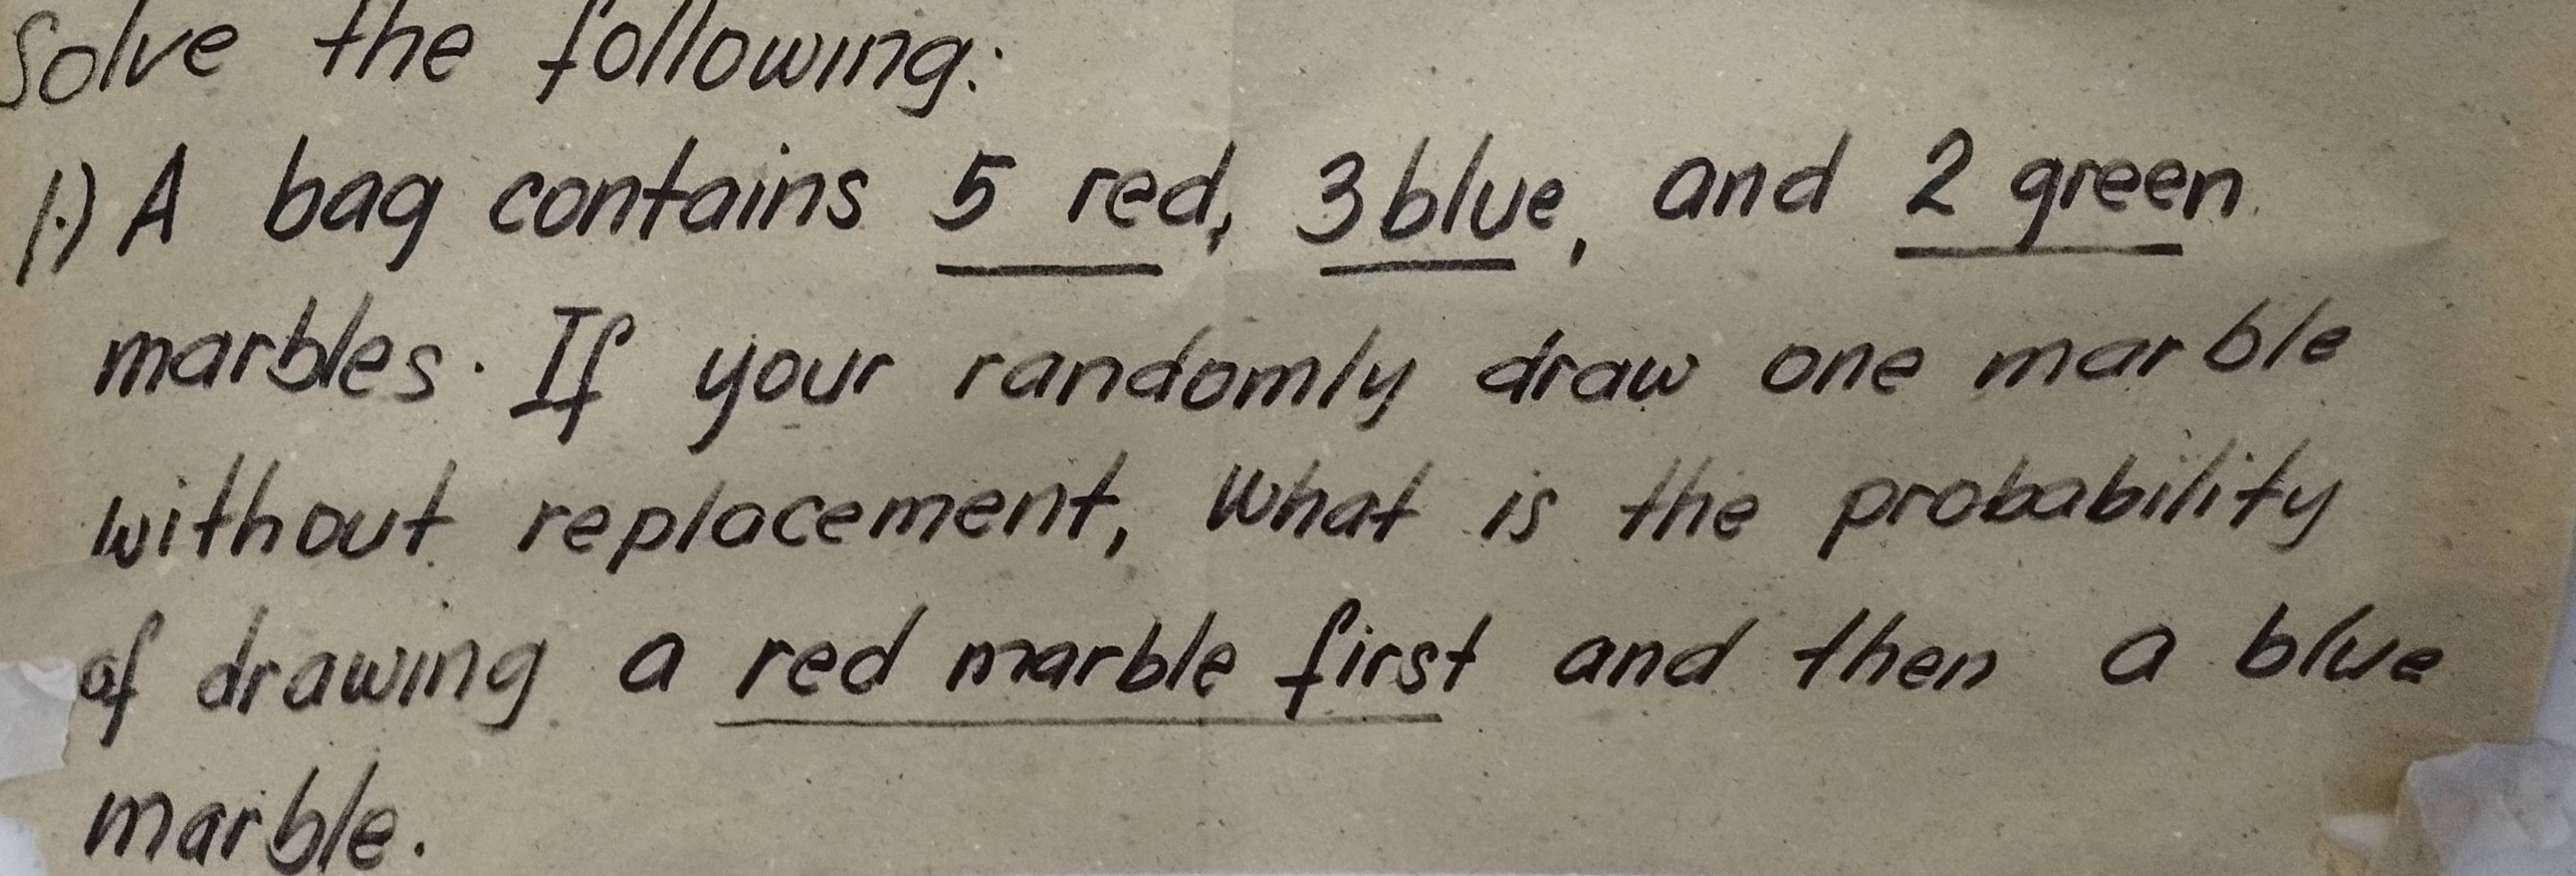 Solve the following:
1.) A bag contains 5 red, 3 blue, and 2 green
marbles. If your randomly draw one marble
without replacement, What is the probability
of drawing a red marble first and then a blue
marble.